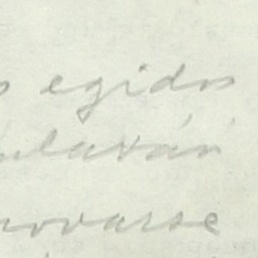 s egidos
ularán
novarse